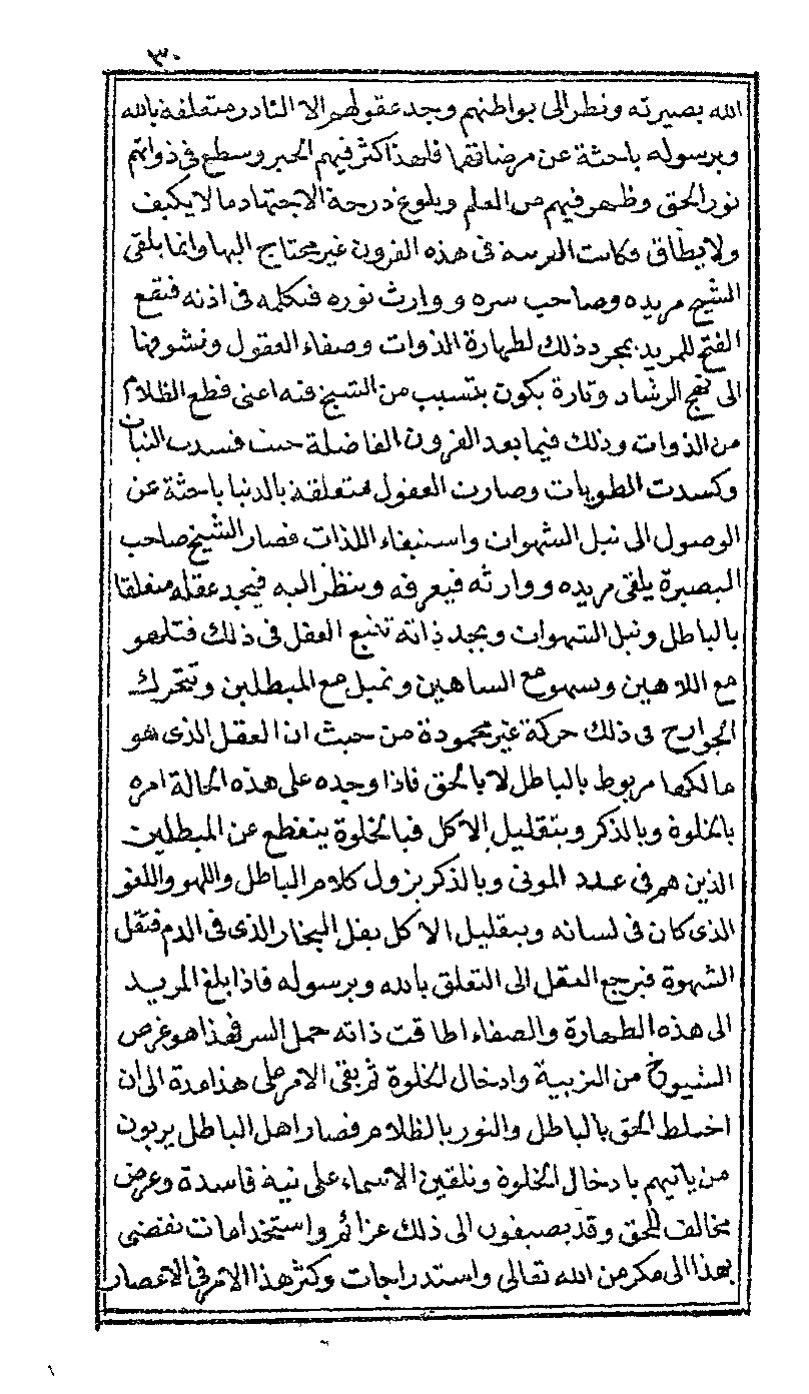 ٣٠
الله بصيرته ونظر الى بواطنهم وجد عقولهم الا النادر متعلقة بالله
وبرسوله باحثة عن مرضاتهما فلهذا كثر فيهم الخير وسطع فى ذواتهم
نور الحق وظهر فيهم من العلم وبلوغ درجة الاجتهاد ما لا يكيف
ولا يطاق وكانت التربية فى هذه القرون غير محتاج اليها وانما يلقى
الشيخ مريده وصاحب سره ووارث نوره فيكلمه فى اذنه فيقع
الفتح للمريد بمجرد ذلك لطهارة الذوات وصفاء العقول وتشوفها
الى نهج الرشاد وتارة يكون بتسبب من الشيخ فيه اعنى قطع الظلام
من الذوات وذلك فيما بعد القرون الفاضلة حيث فسدت النيات
وكسدت الطويات وصارت العقول متعلقة بالدنيا باحثة عن
الوصول الى نيل الشهوات واستيفاء اللذات فصار الشيخ صاحب
البصيرة يلقى مريده ووارثه فيعرفه وينظر اليه فيجد عقله متعلقا
بالباطل ونيل الشهوات ويجد ذاته تتبع العقل فى ذلك فتلهو
مع اللاهين وتسهو مع الساهين وتميل مع المبطلين وتتحرك
الجوارح فى ذلك حركة غير محمودة من حيث ان العقل الذى هو
مالكها مربوط بالباطل لا بالحق فاذا وجده على هذه الحالة امره
بالخلوة وبالذكر وبتقليل الاكل فبالخلوة ينقطع عن المبطلين
الذين هم فى عدد الموتى وبالذكر يزول كلام الباطل واللهو واللغو
الذى كان فى لسانه وبتقليل الاكل يقل البخار الذى فى الدم فتقل
الشهوة فيرجع العقل الى التعلق بالله وبرسوله فاذا بلغ المريد
الى هذه الطهارة والصفاء اطاقت ذاته حمل السر فهذا هو غرض
الشيوخ من التربية وادخال الخلوة ثم بقى الامر على هذا مدة الى ان
اختلط الحق بالباطل والنور بالظلام فصار اهل الباطل يربون
من ياتيهم بادخال الخلوة وتلقين الاسماء على نية فاسدة وغرض
مخالف للحق وقد يضيفون الى ذلك عزائم واستخدامات تفضى
بهذا الى مكر من الله تعالى واستدراجات وكثر هذا الامر فى الاعصار